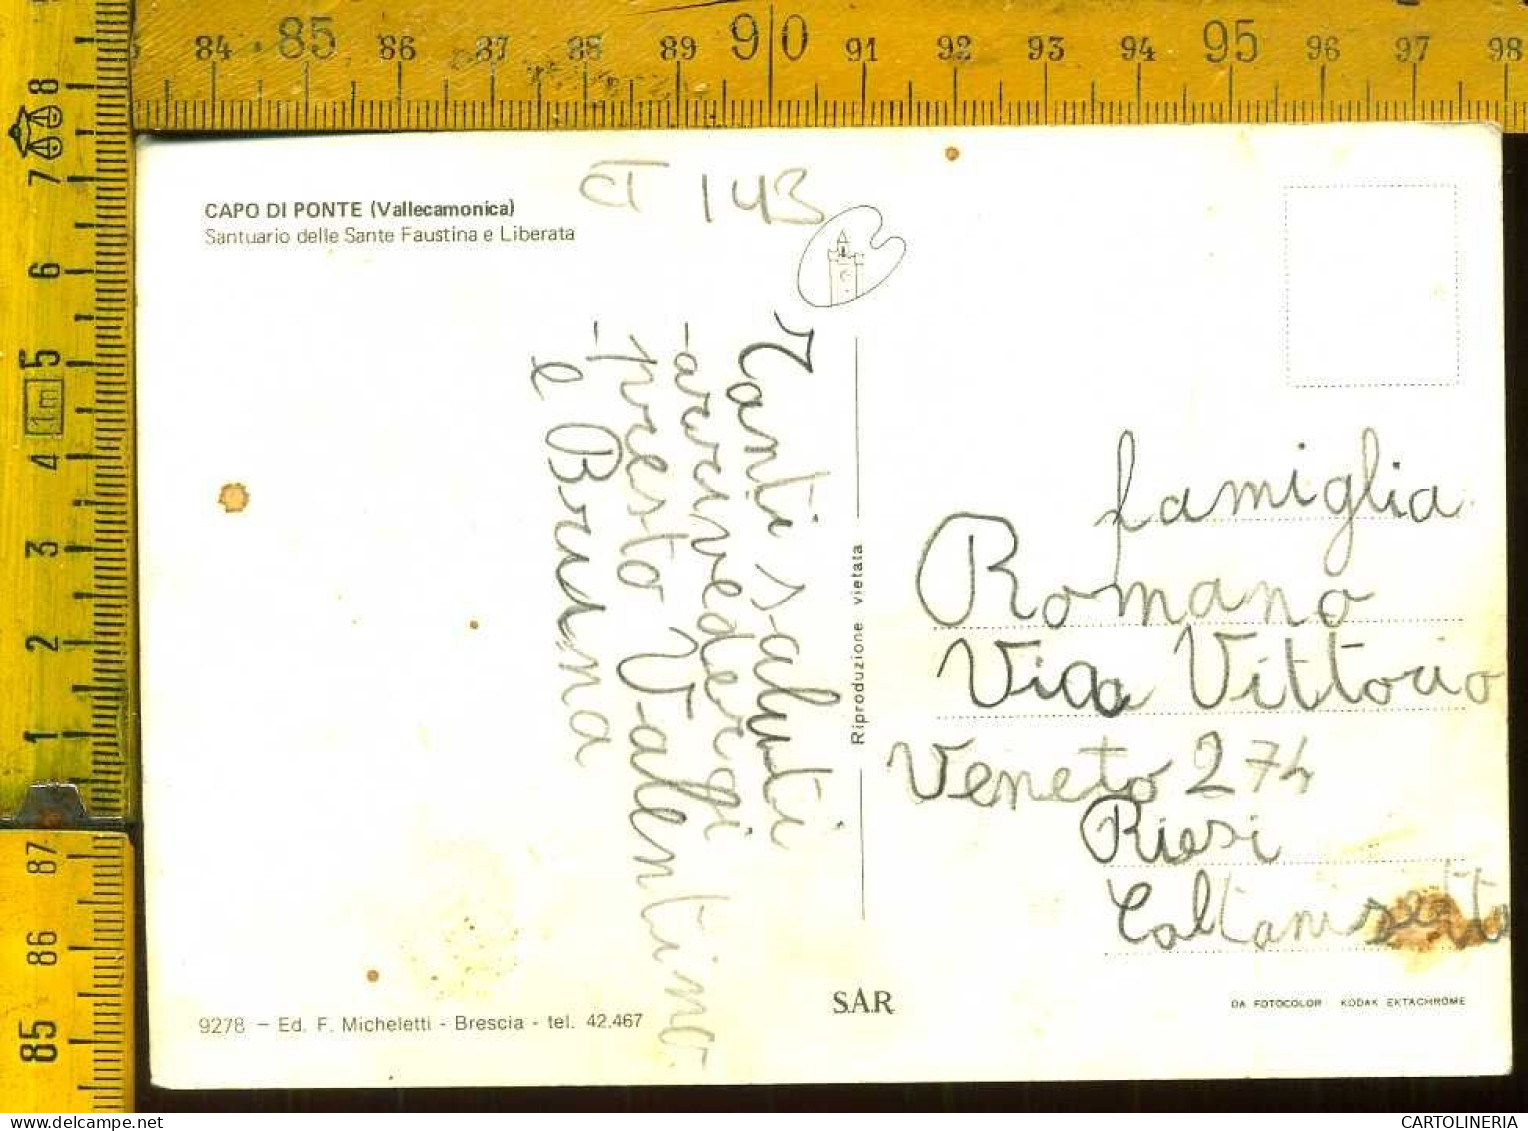 84 85 86 87 88 89 90 91 92 93 94 95 96 97 98
8
7
6
5
1m
4
3
2
1
87
86
85
CT 143
CAPO DI PONTE (Vallecamonica)
Santuario delle Sante Faustina e Liberata
Tanti saluti
-arrivedergi
-presto Valentino
e Bruna
Riproduzione vietata
famiglia
Romano
Via Vittorio
Veneto 274
Riesi
Caltanisetta
9278 – Ed. F. Micheletti - Brescia - tel. 42.467
SAR
DA FOTOCOLOR KODAK EKTACHROME
delcampe.net
CARTOLINERIA